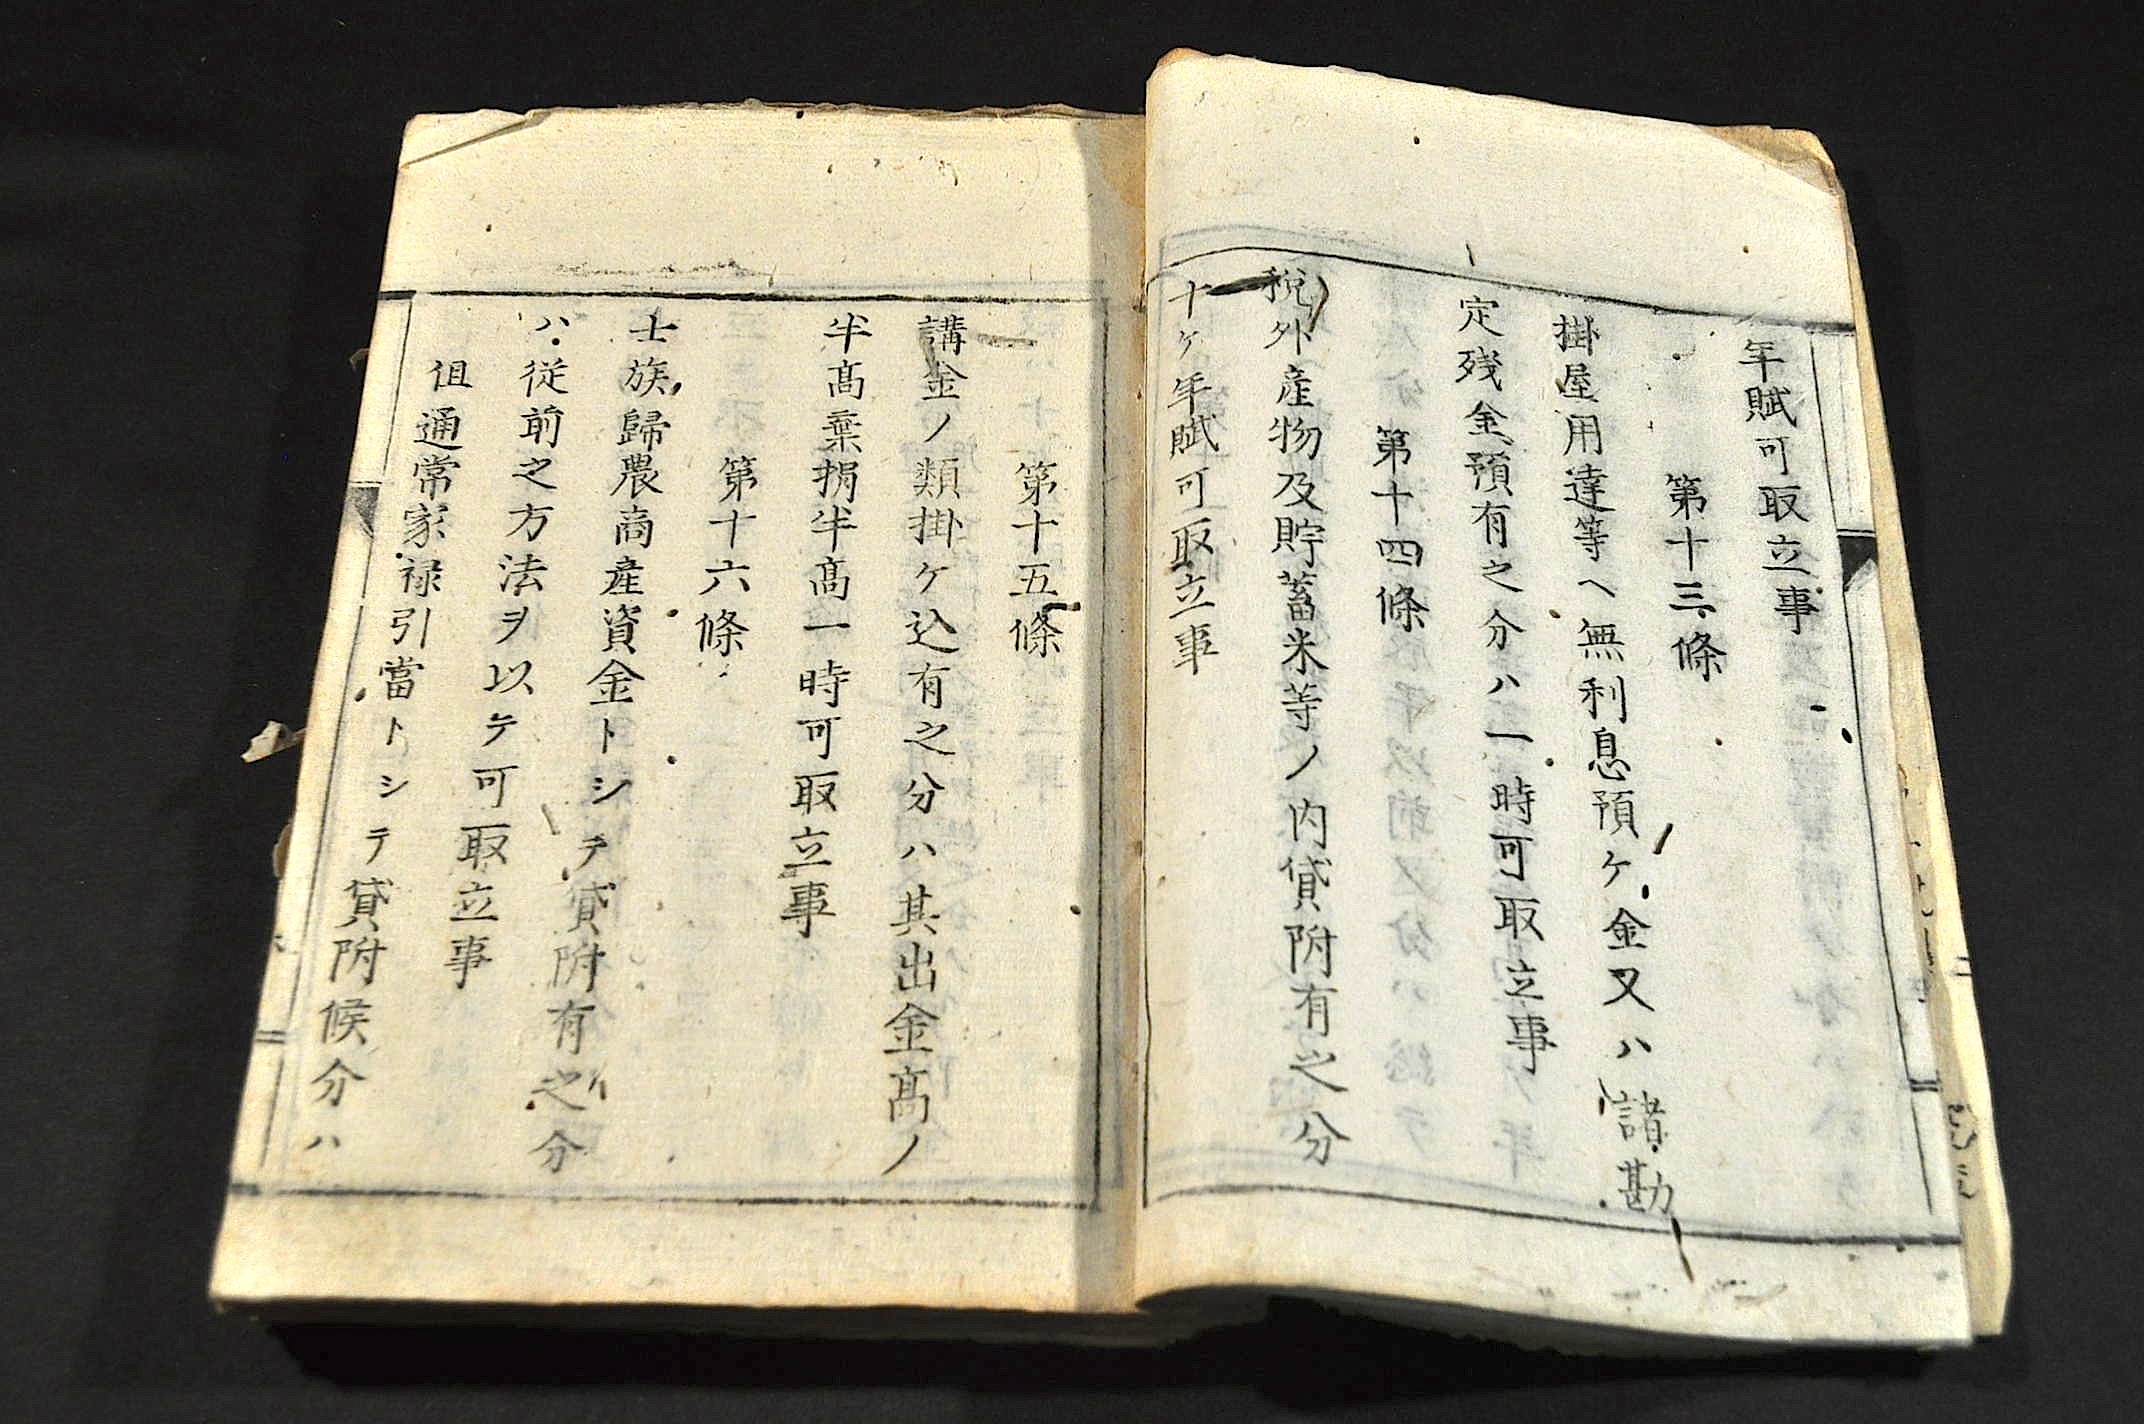 年賦可取立事
第十三條
掛屋用達等ヘ無利息預ケ金又ハ諸勘
定残金預有之分ハ一時可取立事
第十四條
税外産物及貯蓄米等ノ内貸附有之分
十ケ年賦可取立事
第十五條
講金ノ類掛ケ込有之分ハ其出金髙ノ
半髙棄捐半髙一時可取立事
第十六條
士族歸農商産資金トシテ貸附有之分
ハ従前之方法ヲ以テ可取立事
伹通常家禄引當トシテ貸附候分ハ